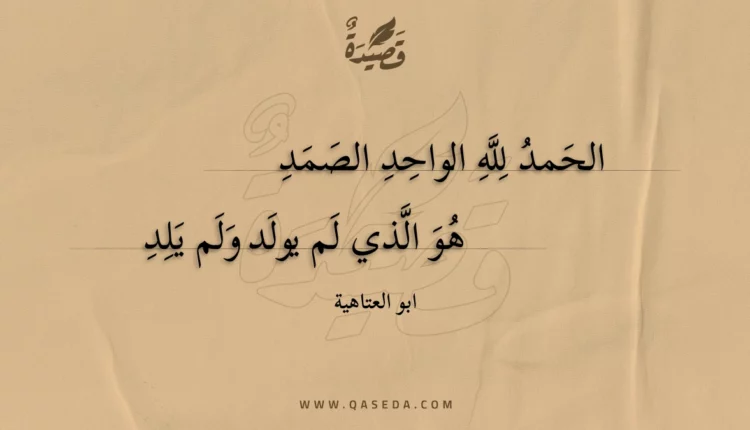 قَصِيدَةٌ
الحَمدُ لِلَّهِ الواحِدِ الصَمَدِ
هُوَ الَّذي لَم يولَد وَلَم يَلِدِ
ابو العتاهية
WWW.QASEDA.COM